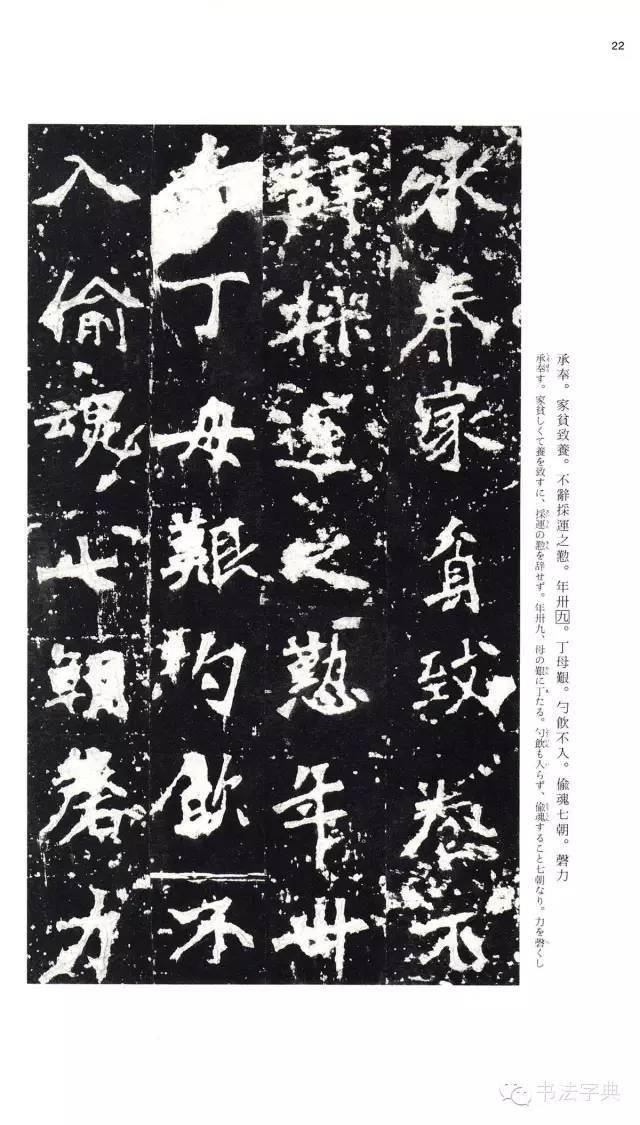 22
承奉。家貧致養。不辭採運之懃。年卅九。丁母艱。勺飲不入。偷魂七朝。磬力
承奉す。家貧しくて養を致すに、採運の懃を辞せず。年卅九、母の艱に丁たる。勺飲も入らず、偷魂すること七朝なり。力を磬くし
承奉家貧致養不
辭採運之懃年卅
丁母艱杓飲不
入偷魂七朝磬力
书法字典